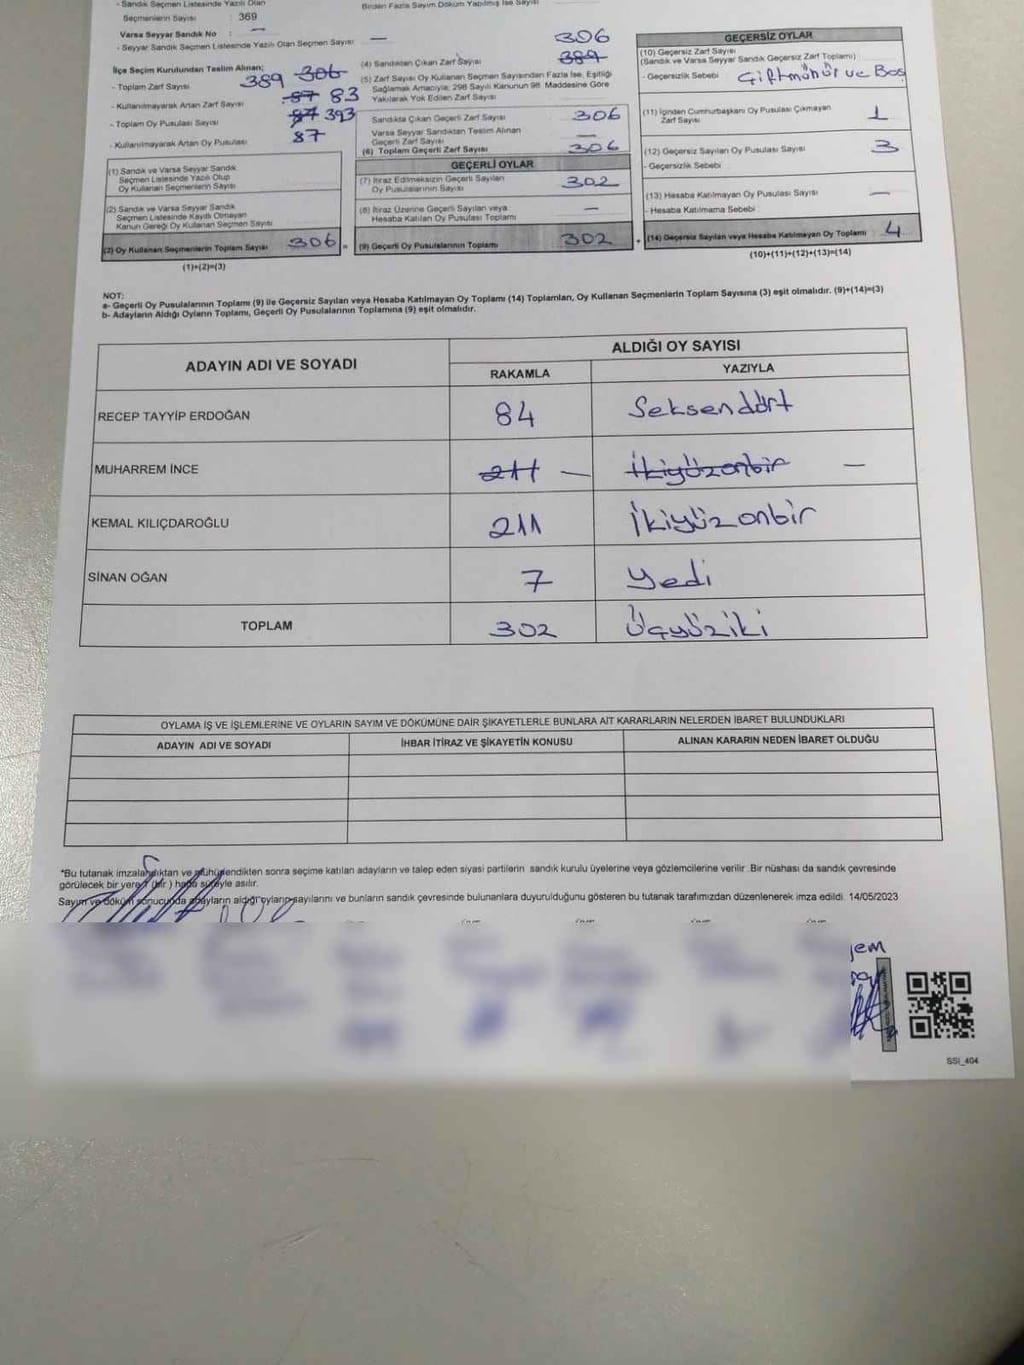 - Sandık Seçmen Listesinde Yazılı Olan
Seçmenlerin Sayısı : 369
Varsa Seyyar Sandık No : —
- Seyyar Sandık Seçmen Listesinde Yazılı Olan Seçmen Sayısı —
İlçe Seçim Kurulundan Teslim Alınan;
- Toplam Zarf Sayısı 389 306
- Kullanılmayarak Artan Zarf Sayısı 87 83
- Toplam Oy Pusulası Sayısı 87 393
- Kullanılmayarak Artan Oy Pusulası 87
(1) Sandık ve Varsa Seyyar Sandık
Seçmen Listesinde Yazılı Olup
Oy Kullanan Seçmenlerin Sayısı
(2) Sandık ve Varsa Seyyar Sandık
Seçmen Listesinde Kayıtlı Olmayan
Kanun Gereği Oy Kullanan Seçmen Sayısı
(3) Oy Kullanan Seçmenlerin Toplam Sayısı 306 =
(1)+(2)=(3)
Birden Fazla Sayım Döküm Yapılmış İse Sayısı
306
(4) Sandıktan Çıkan Zarf Sayısı 389
(5) Zarf Sayısı Oy Kullanan Seçmen Sayısından Fazla İse, Eşitliği
Sağlamak Amacıyla, 298 Sayılı Kanunun 98. Maddesine Göre
Yakılarak Yok Edilen Zarf Sayısı
Sandıkta Çıkan Geçerli Zarf Sayısı 306
Varsa Seyyar Sandıktan Teslim Alınan
Geçerli Zarf Sayısı —
(6) Toplam Geçerli Zarf Sayısı 306
GEÇERLİ OYLAR
(7) İtiraz Edilmeksizin Geçerli Sayılan
Oy Pusulalarının Sayısı 302
(8) İtiraz Üzerine Geçerli Sayılan veya
Hesaba Katılan Oy Pusulası Toplamı —
(9) Geçerli Oy Pusulalarının Toplamı 302 +
GEÇERSİZ OYLAR
(10) Geçersiz Zarf Sayısı
(Sandık ve Varsa Seyyar Sandık Geçersiz Zarf Toplamı)
- Geçersizlik Sebebi Çiftmühür ve Boş
(11) İçinden Cumhurbaşkanı Oy Pusulası Çıkmayan
Zarf Sayısı 1
(12) Geçersiz Sayılan Oy Pusulası Sayısı 3
- Geçersizlik Sebebi
(13) Hesaba Katılmayan Oy Pusulası Sayısı —
- Hesaba Katılmama Sebebi
(14) Geçersiz Sayılan veya Hesaba Katılmayan Oy Toplamı 4
(10)+(11)+(12)+(13)=(14)
NOT:
a- Geçerli Oy Pusulalarının Toplamı (9) ile Geçersiz Sayılan veya Hesaba Katılmayan Oy Toplamı (14) Toplamları, Oy Kullanan Seçmenlerin Toplam Sayısına (3) eşit olmalıdır. (9)+(14)=(3)
b- Adayların Aldığı Oyların Toplamı, Geçerli Oy Pusulalarının Toplamına (9) eşit olmalıdır.
ADAYIN ADI VE SOYADI
ALDIĞI OY SAYISI
RAKAMLA YAZIYLA
RECEP TAYYİP ERDOĞAN 84 Seksendört
MUHARREM İNCE 211 — İkiyüzonbir —
KEMAL KILIÇDAROĞLU 211 İkiyüzonbir
SİNAN OĞAN 7 Yedi
TOPLAM 302 Üçyüziki
OYLAMA İŞ VE İŞLEMLERİNE VE OYLARIN SAYIM VE DÖKÜMÜNE DAİR ŞİKAYETLERLE BUNLARA AİT KARARLARIN NELERDEN İBARET BULUNDUKLARI
ADAYIN ADI VE SOYADI İHBAR İTİRAZ VE ŞİKAYETİN KONUSU ALINAN KARARIN NEDEN İBARET OLDUĞU
*Bu tutanak imzalandıktan ve mühürlendikten sonra seçime katılan adayların ve talep eden siyasi partilerin sandık kurulu üyelerine veya gözlemcilerine verilir. Bir nüshası da sandık çevresinde
görülecek bir yere 1 (bir) hafta süreyle asılır.
Sayım ve döküm sonucunda adayların aldığı oyların sayılarını ve bunların sandık çevresinde bulunanlara duyurulduğunu gösteren bu tutanak tarafımızdan düzenlenerek imza edildi. 14/05/2023
SSİ_404